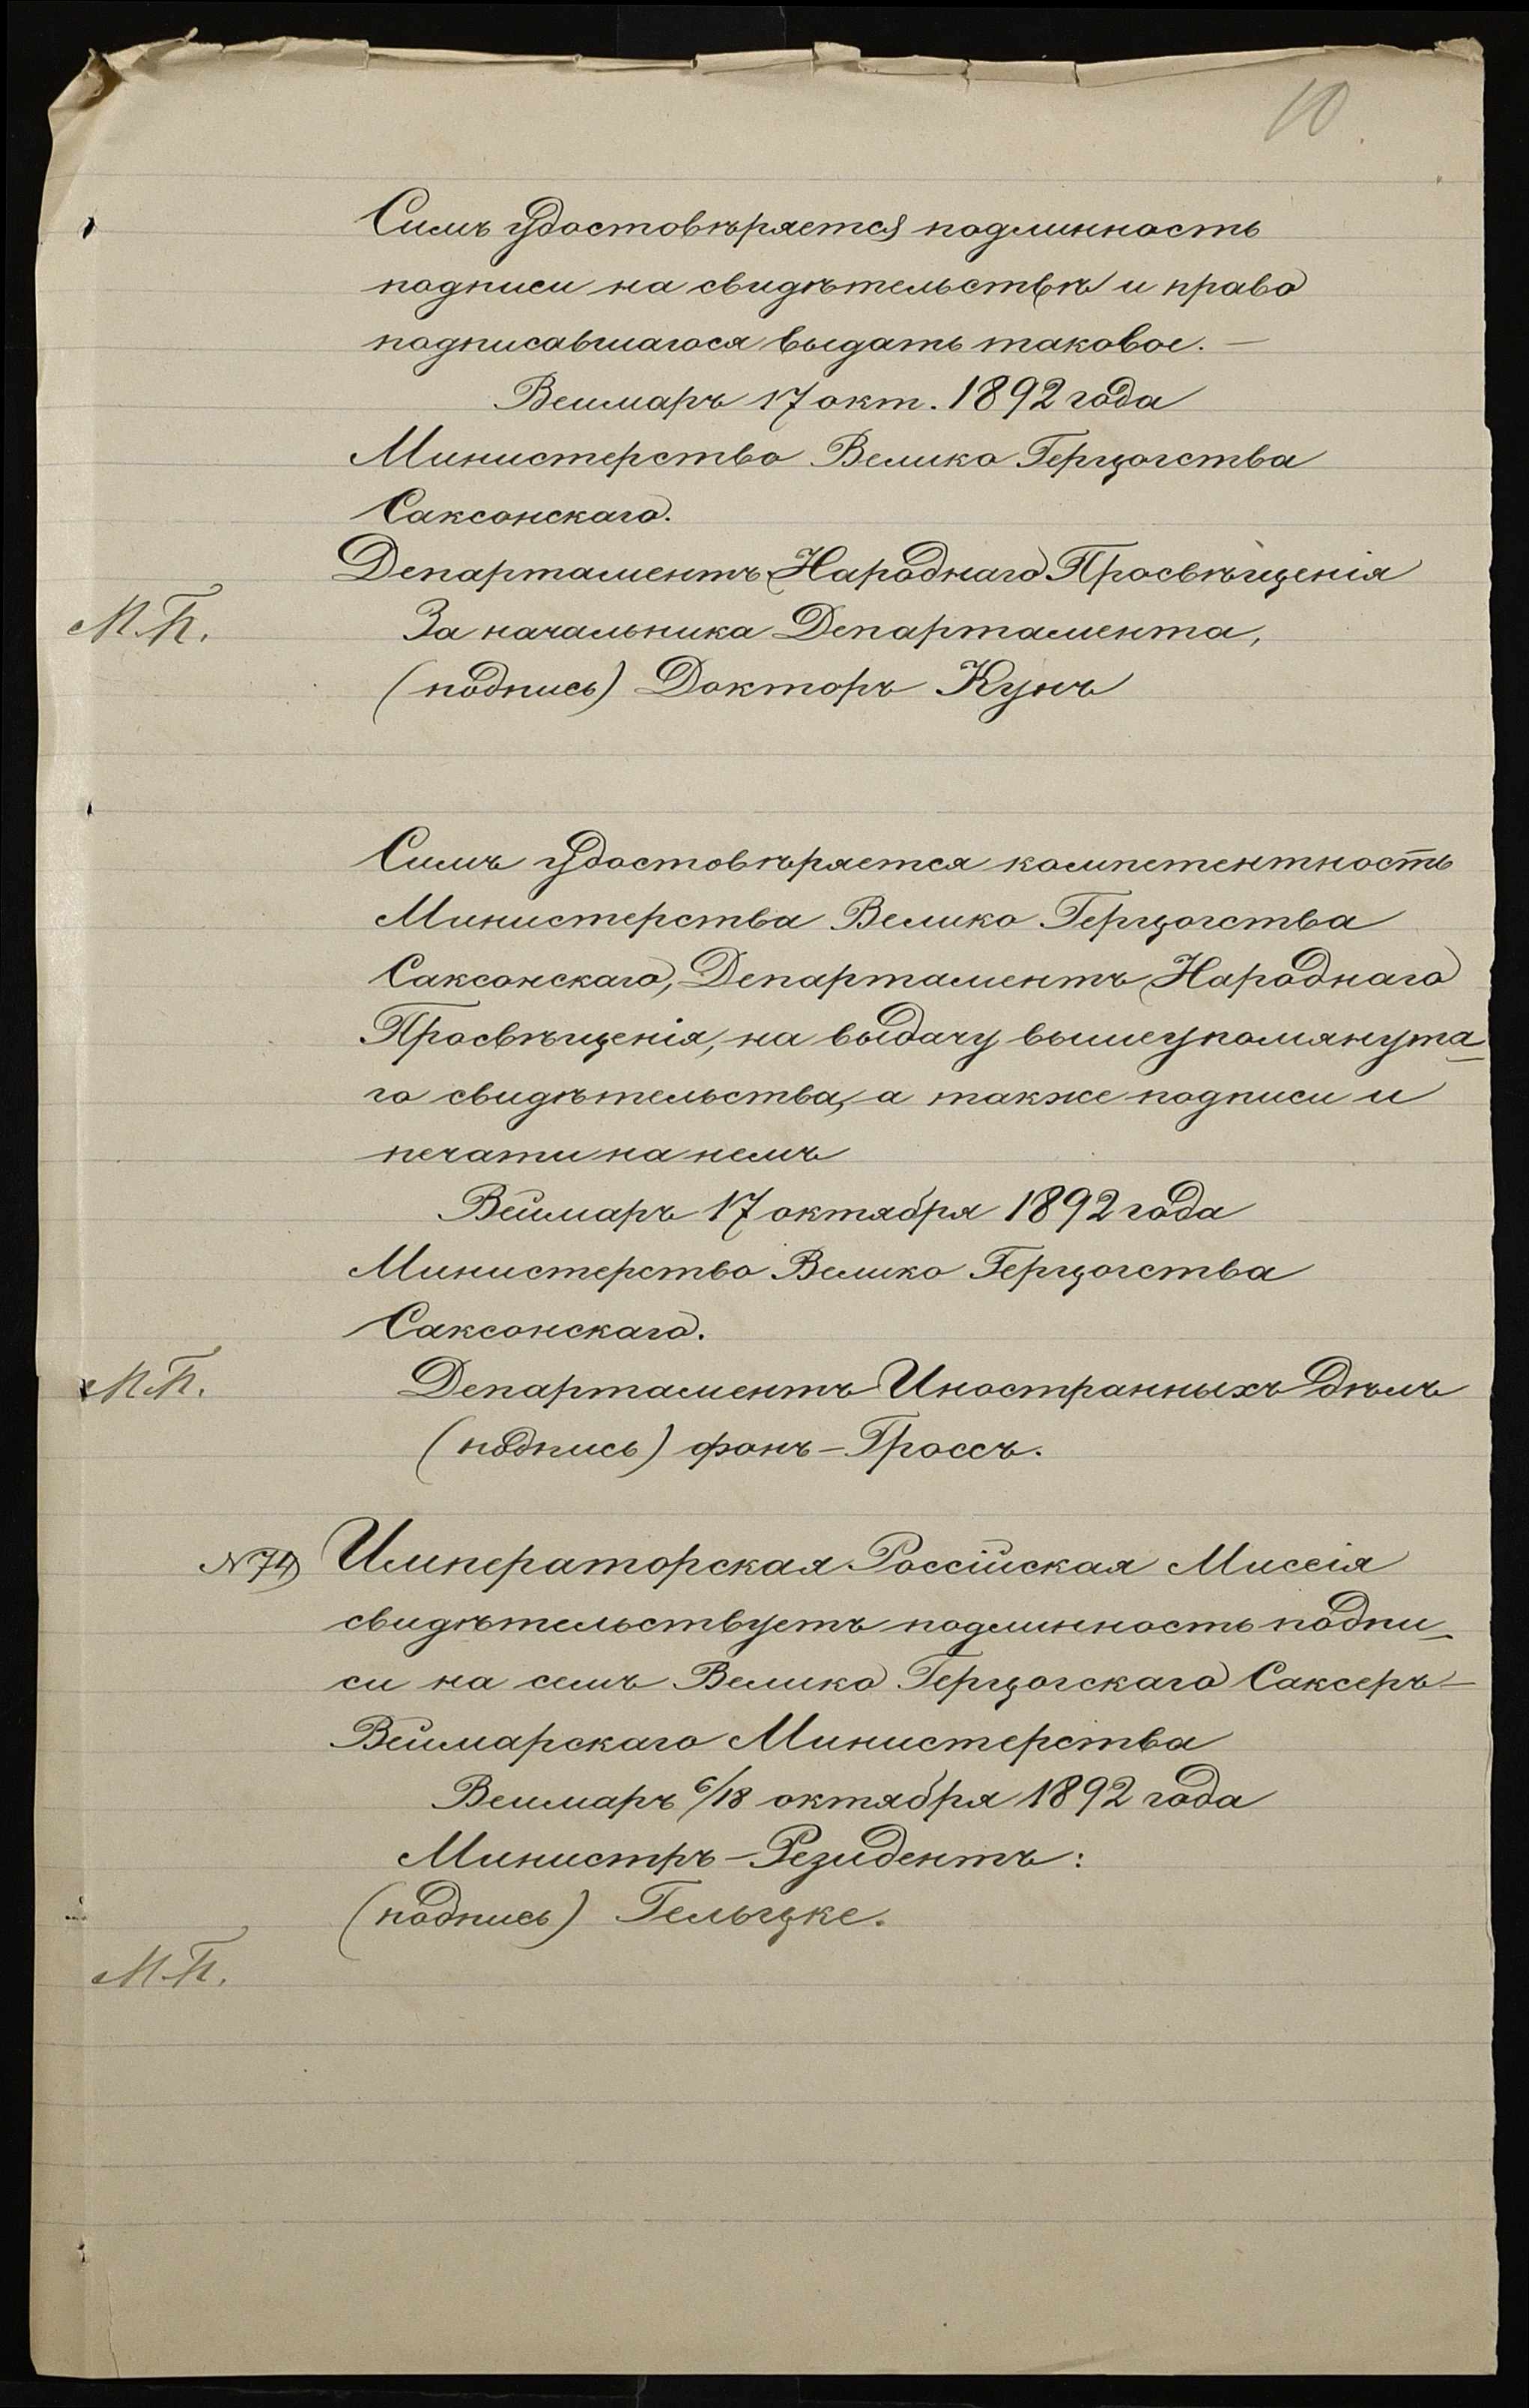 10
Симъ удостовѣряется подлинность
подписи на свидѣтельствѣ и право
подписавшагося выдать таковое. —
Веимаръ 17 окт. 1892 года
Министерство Велико Герцогства
Саксонскаго.
Департаментъ Народнаго Просвѣщенія
М.П. За начальника Департамента,
(подпись) Докторъ Кунъ
Симъ удостовѣряется компетентность
Министерства Велико Герцогства
Саксонскаго, Департаментъ Народнаго
Просвѣщенія, на выдачу вышеупомянута-
го свидѣтельства, а также подписи и
печати на немъ
Веймаръ 17 октября 1892 года
Министерство Велико Герцогства
Саксонскаго.
М.П. Департаментъ Иностранныхъ дѣлъ
(подпись) фонъ-Гроссъ.
N 74) Императорская Россійская Миссія
свидѣтельствуетъ подлинность подпи-
си на семъ Велико Герцогскаго Саксеръ-
Веймарскаго Министерства
Веимаръ 6/18 октября 1892 года
Министръ-Резидентъ:
(подпись) Гельцке.
М.П.